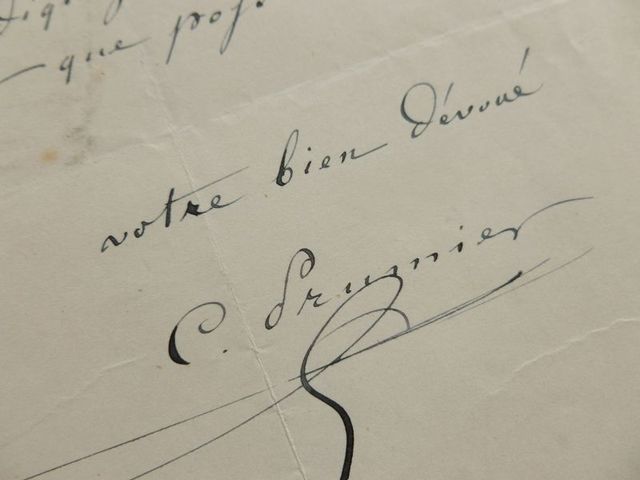 que pos.
votre bien dévoué
C. Prumier